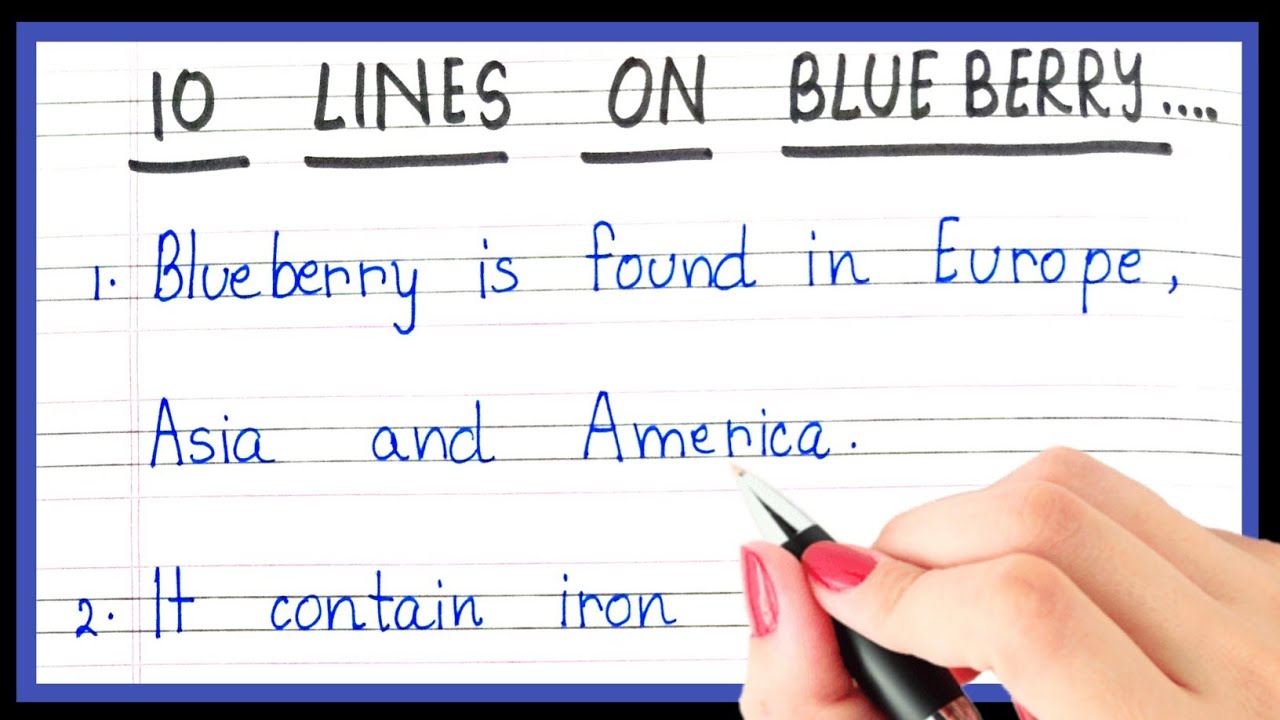 10 LINES ON BLUE BERRY....
1. Blueberry is found in Europe,
Asia and America.
2. It contain iron